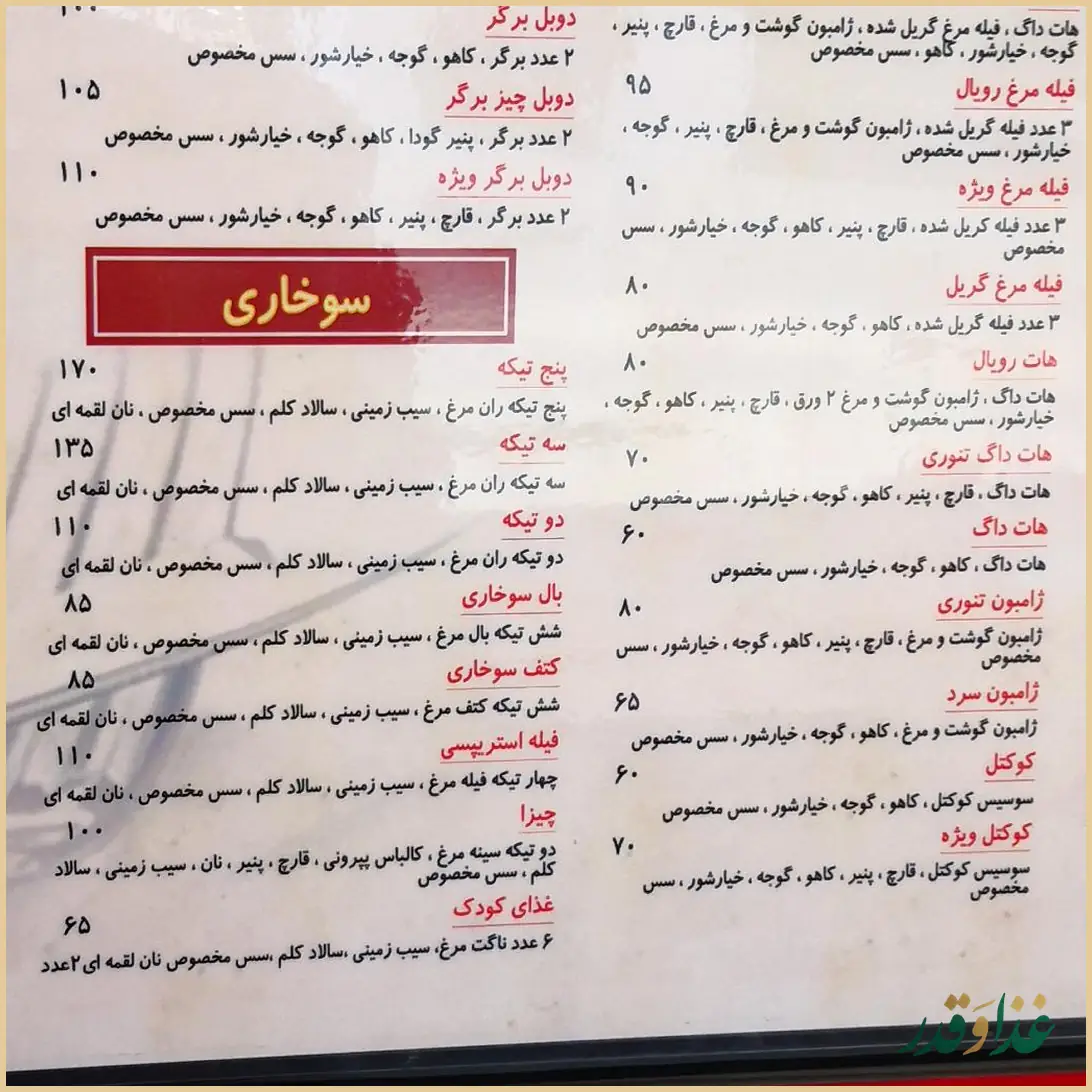 هات داگ ، فیله مرغ گریل شده ، ژامبون گوشت و مرغ ، قارچ ، پنیر ،
گوجه ، خیارشور ، کاهو ، سس مخصوص
فیله مرغ رویال ۹۵
۳ عدد فیله گریل شده ، ژامبون گوشت و مرغ ، قارچ ، پنیر ، گوجه ،
خیارشور ، سس مخصوص
فیله مرغ ویژه ۹۰
۳ عدد فیله گریل شده ، قارچ ، پنیر ، کاهو ، گوجه ، خیارشور ، سس
مخصوص
فیله مرغ گریل ۸۰
۳ عدد فیله گریل شده ، کاهو ، گوجه ، خیارشور ، سس مخصوص
هات رویال ۸۰
هات داگ ، ژامبون گوشت و مرغ ۲ ورق ، قارچ ، پنیر ، کاهو ، گوجه ،
خیارشور ، سس مخصوص
هات داگ تنوری ۷۰
هات داگ ، قارچ ، پنیر ، کاهو ، گوجه ، خیارشور ، سس مخصوص
هات داگ ۶۰
هات داگ ، کاهو ، گوجه ، خیارشور ، سس مخصوص
ژامبون تنوری ۸۰
ژامبون گوشت و مرغ ، قارچ ، پنیر ، کاهو ، گوجه ، خیارشور ، سس
مخصوص
ژامبون سرد ۶۵
ژامبون گوشت و مرغ ، کاهو ، گوجه ، خیارشور ، سس مخصوص
کوکتل ۶۰
سوسیس کوکتل ، کاهو ، گوجه ، خیارشور ، سس مخصوص
کوکتل ویژه ۷۰
سوسیس کوکتل ، قارچ ، پنیر ، کاهو ، گوجه ، خیارشور ، سس
مخصوص
دوبل برگر
۲ عدد برگر ، کاهو ، گوجه ، خیارشور ، سس مخصوص
دوبل چیز برگر ۱۰۵
۲ عدد برگر ، پنیر گودا ، کاهو ، گوجه ، خیارشور ، سس مخصوص
دوبل برگر ویژه ۱۱۰
۲ عدد برگر ، قارچ ، پنیر ، کاهو ، گوجه ، خیارشور ، سس مخصوص
سوخاری
پنج تیکه ۱۷۰
پنج تیکه ران مرغ ، سیب زمینی ، سالاد کلم ، سس مخصوص ، نان لقمه ای
سه تیکه ۱۳۵
سه تیکه ران مرغ ، سیب زمینی ، سالاد کلم ، سس مخصوص ، نان لقمه ای
دو تیکه ۱۱۰
دو تیکه ران مرغ ، سیب زمینی ، سالاد کلم ، سس مخصوص ، نان لقمه ای
بال سوخاری ۸۵
شش تیکه بال مرغ ، سیب زمینی ، سالاد کلم ، سس مخصوص ، نان لقمه ای
کتف سوخاری ۸۵
شش تیکه کتف مرغ ، سیب زمینی ، سالاد کلم ، سس مخصوص ، نان لقمه ای
فیله استریپسی ۱۱۰
چهار تیکه فیله مرغ ، سیب زمینی ، سالاد کلم ، سس مخصوص ، نان لقمه ای
چیزا ۱۰۰
دو تیکه سینه مرغ ، کالباس پپرونی ، قارچ ، پنیر ، نان ، سیب زمینی ، سالاد
کلم ، سس مخصوص
غذای کودک ۶۵
۶ عدد ناگت مرغ، سیب زمینی ،سالاد کلم ،سس مخصوص نان لقمه ای۲عدد
غذا و قدر